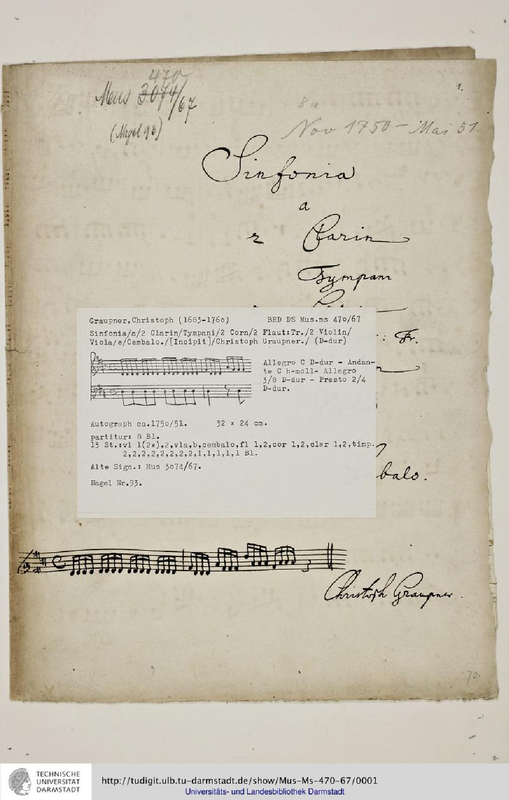 470
Mus 3074/67
(Nagel 93)
1.
Nov 1750 - Mai 51
Sinfonia
a
2 Clarin
Tympani
: Fr.
balo.
Graupner,Christoph (1683-1760) BRD DS Mus.ms 470/67
Sinfonia/a/2 Clarin/Tympani/2 Corn/2 Flaut:Tr./2 Violin/
Viola/e/Cembalo./[Incipit]/Christoph Graupner./ (D-dur)
Allegro C D-dur - Andan-
te C h-moll- Allegro
3/8 D-dur - Presto 2/4
D-dur.
Autograph ca.1750/51. 32 x 24 cm.
partitur: 8 Bl.
13 St.:vl 1(2x),2,vla,b,cembalo,fl 1,2,cor 1,2,clar 1,2,timp.
2,2,2,2,2,2,2,2,1,1,1,1,1 Bl.
Alte Sign.: Mus 3074/67.
Nagel Nr.93.
Christoph Graupner.
TECHNISCHE
UNIVERSITÄT
DARMSTADT
http://tudigit.ulb.tu-darmstadt.de/show/Mus-Ms-470-67/0001
Universitäts- und Landesbibliothek Darmstadt